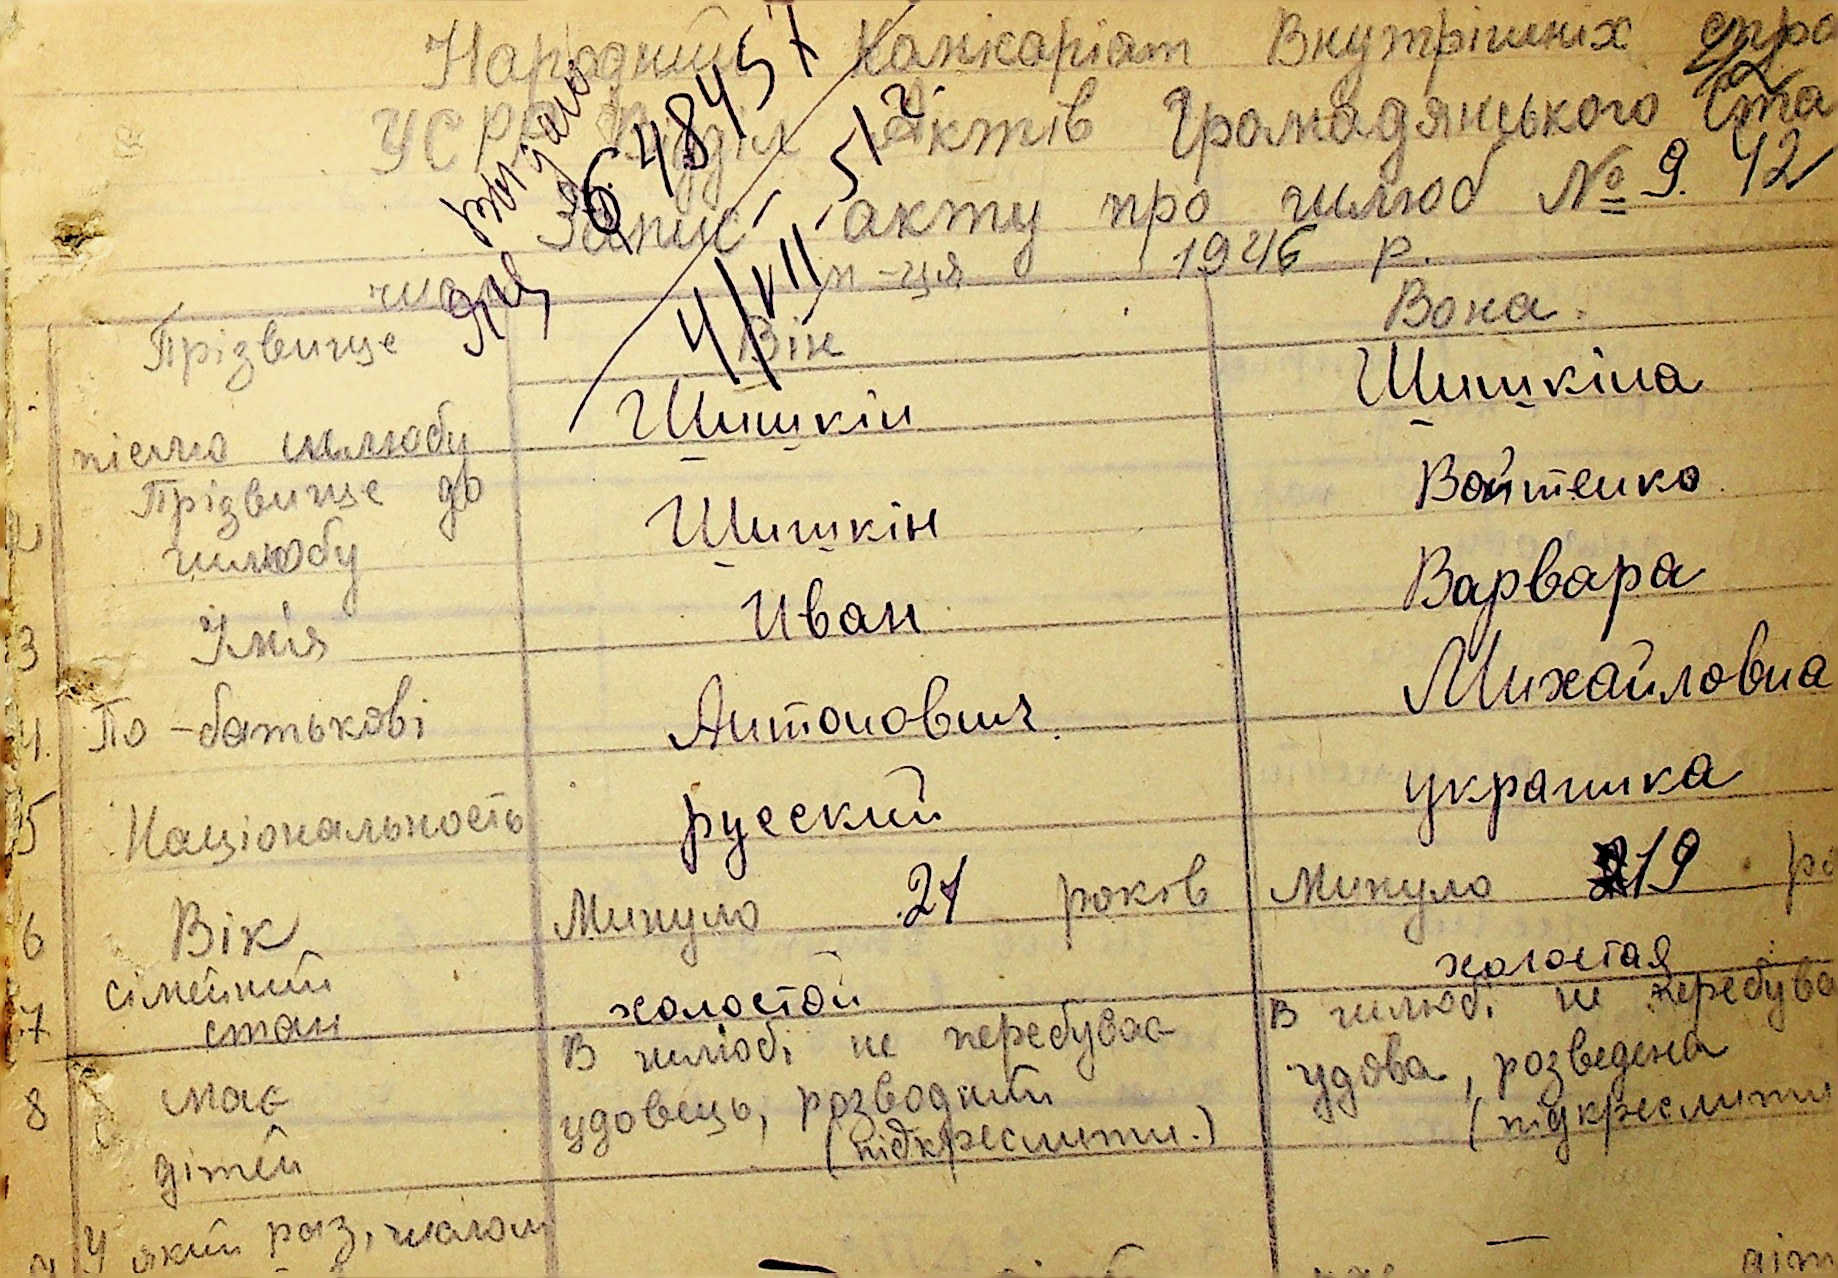 Народний Комісаріат Внутрішніх спра
УСРР Відділ Актів Громадянського Ста
Запис акту про шлюб № 9. 42
число м-ця 1946 р.
видано
48457
4/VII 51 г
Прізвище Він Вона.
після шлюбу Шишкін Шишкіна
2 Прізвище до шлюбу Шишкін Войтенко
3 Імія Иван Варвара
4. По-батькові Антонович Михайловна
5 Національность русский украинка
6 Вік Минуло 21 років Минуло 19 ро
7 сімейний стан холостой холостая
В шлюбі не перебував В шлюбі не перебува
удовець, розводний удова, розведена
(підкреслити.) (підкреслити
8 має дітей
У який раз, шлюбом